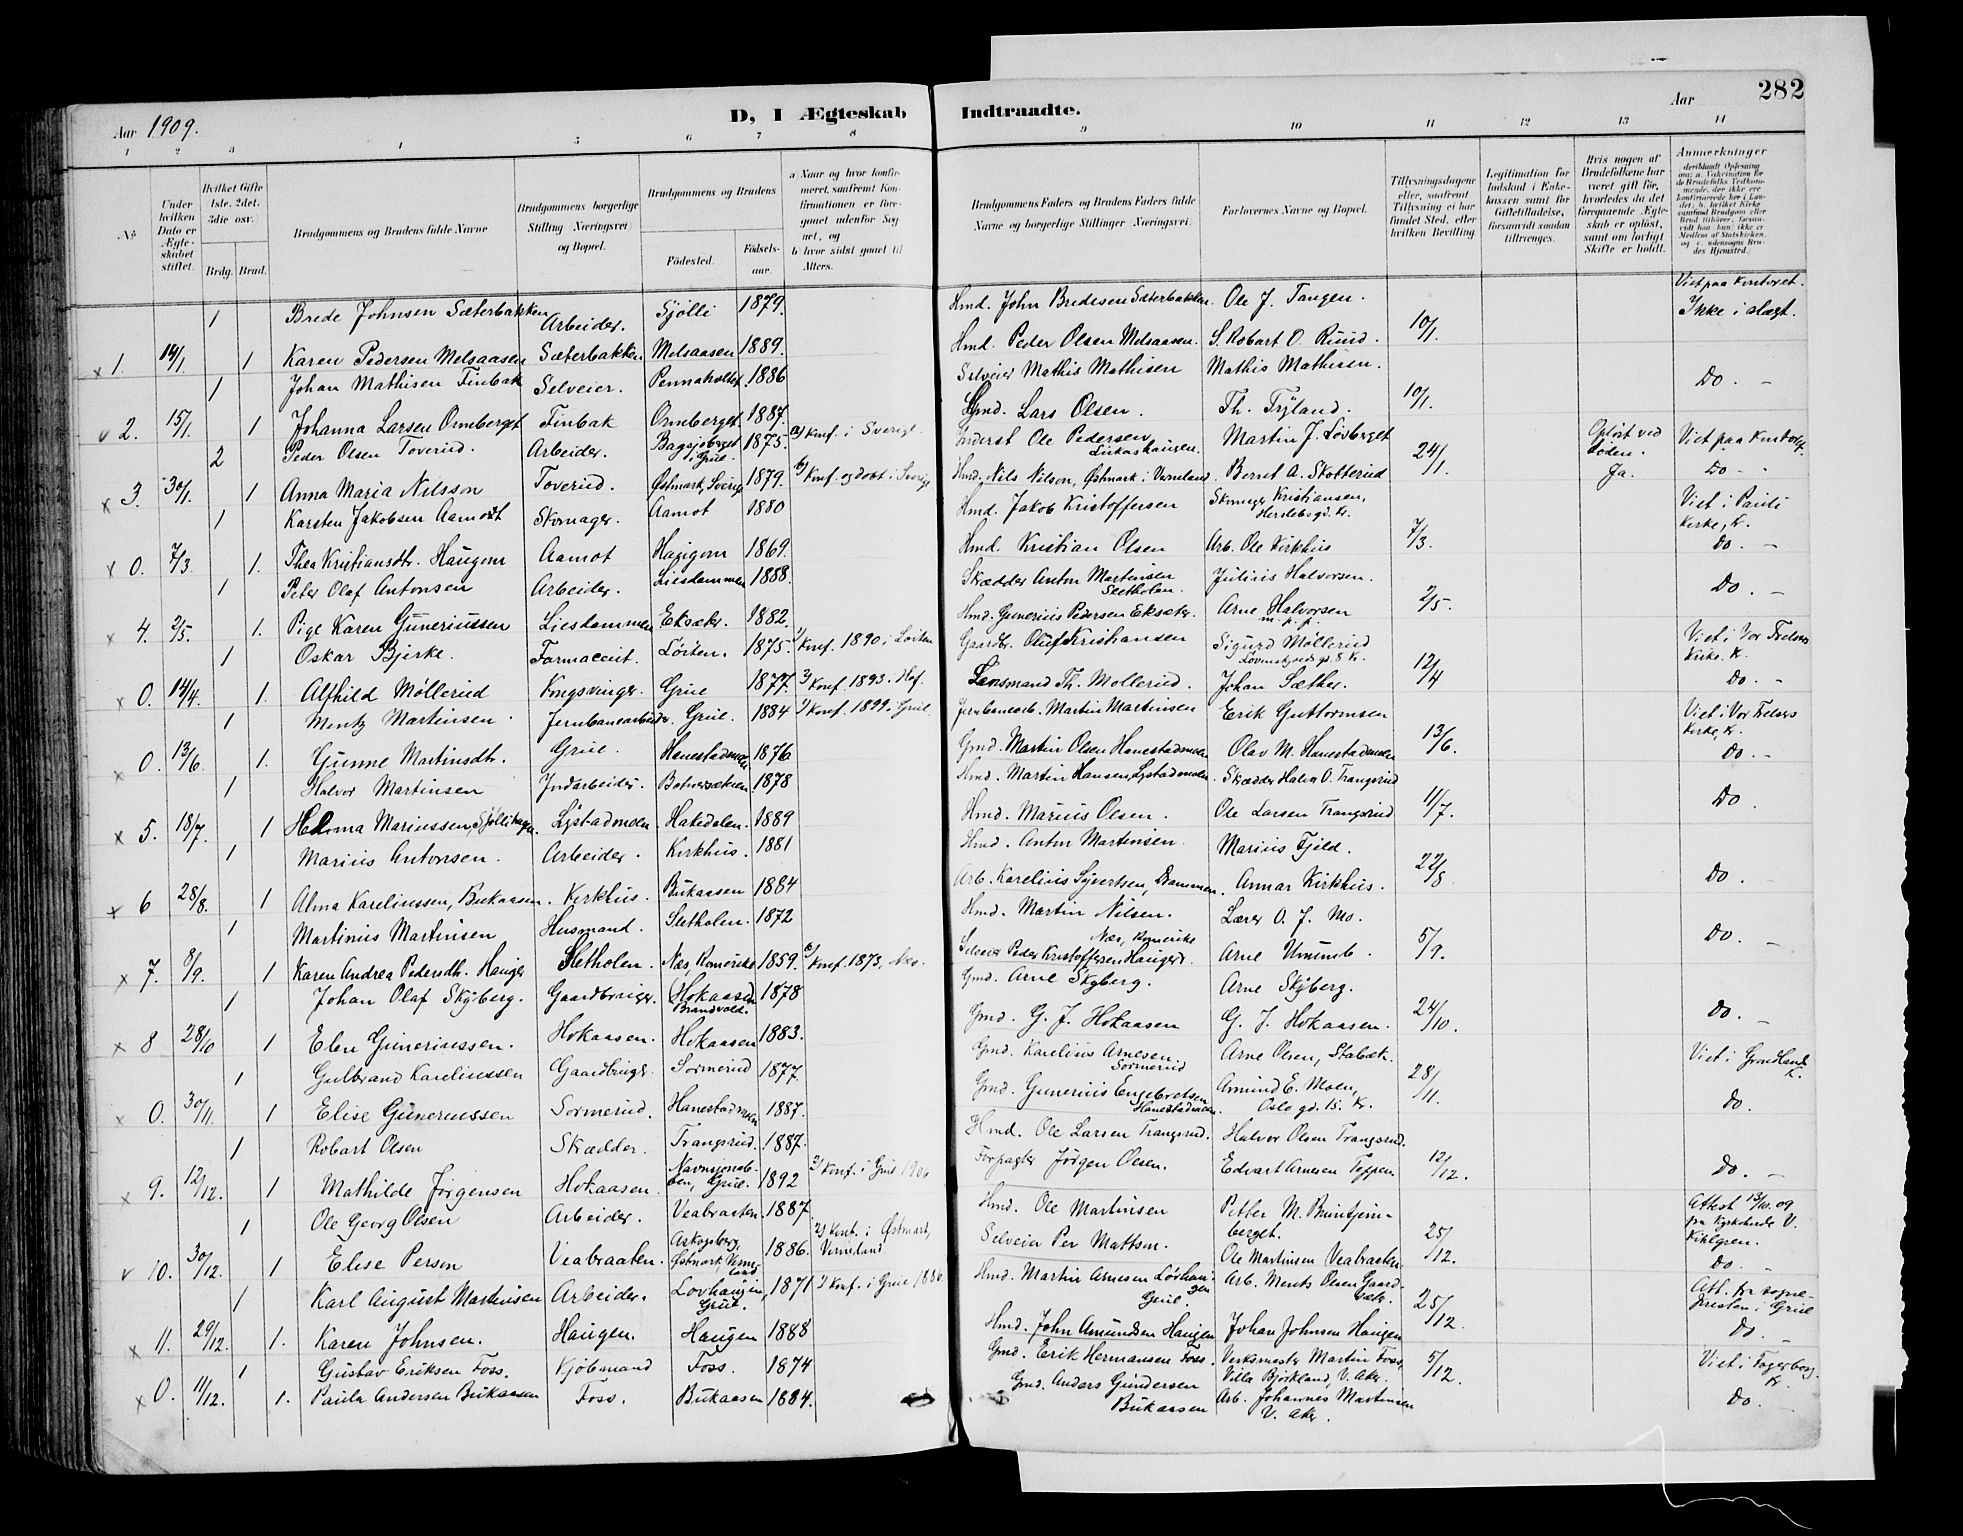 Aar 1909.
D, I Ægteskab Indtraadte.
Aar 282
1 2 3 4 5 6 7 8 9 10 11 12 13 14
No
Under hvilken Dato er Ægteskabet stiftet.
Hvilket Gifte 1ste. 2det. 3die osv.
Brdg. Brud.
Brudgommens og Brudens fulde Navne
Brudgommens borgerlige Stilling Næringsvei og Bopæl.
Brudgommens og Brudens
Födested.
Födselsaar.
a Naar og hvor konfirmeret, saafremt Konfirmationen er foregaaet udenfor Sognet, og
b hvor sidst gaaet til Alters.
Brudgommens Faders og Brudens Faders fulde Navne og borgerlige Stillinger Næringsvei.
Forlovernes Navne og Bopæl.
Tillysningsdagene eller, saafremt Tillysning ei har fundet Sted, efter hvilken Bevilling.
Legitimation for Indskud i Enkekassen samt for Giftetilladelse, forsaavidt saadan tiltrænges.
Hvis nogen af Brudefolkene har været gift för, hvorledes da det foregaaende Ægteskab er oplöst, samt om lovligt Skifte er holdt.
Anmerkninger
1 Brede Johnsen Sæterbakken Arbeider. Sjölli 1879. Hmd. John Bredesen Sæterbakken. Ole J. Tangen. Viet paa Kontoret. Ikke i slægt.
x 1. 14/1. 1 Karen Pedersen Melsaasen Sæterbakken Melsaasen 1889. Hmd. Peder Olsen Melsaasen. S. Robart O. Ruud. 10/1.
1 Johan Mathisen Finbak Selveier. 1886 Selveier Mathis Mathisen Mathis Mathisen. Do. -
v 2. 15/1. 1 Johanna Larsen Ormberget Finbak Ormberget. 1887. Gmd. Lars Olsen. Th. Tyland. 10/1.
2 Peder Olsen Toverud. Arbeider. Bagsjöberget i Grue. 1875. a) Konf. i Sverige. Inderst Ole Pedersen Lukashaugen. Martin J. Lövberget Oplöst ved Döden. Viet paa Kontoret.
x 3. 30/1. 1 Anna Maria Nilsson Toverud. Östmark, Sverige 1879. b) Konf. og döbt i Sverige Hmd. Nils Nilson, Östmark i Vermland. Bernt A. Skotterud 24/1. Ja. Do -
1 Karsten Jakobsen Aamodt Skomager. Aamot 1880 Hmd. Jakob Kristoffersen Skomager Kristiansen, Herslebsgd. Kr. Viet i Pauls Kirke, Kr.
x 0. 7/3. 1. Thea Kristiansdtr. Haugom Aamot Haugom 1869. Hmd. Kristian Olsen Arb. Ole Kirkhus 7/3. Do. -
1 Peter Olaf Antonsen Arbeider. Liesdammen 1888. Skrædder Anton Martinsen Sletholen. Julius Halvorsen. Do. -
x 4. 2/5. 1. Pige Karen Guneriussen Liesdammen Eksæter. 1882. Hmd. Gunerius Pedersen Eksæter. Arne Halvorsen m. p. p. 2/5.
1 Oskar Bjerke. Farmaceut. Löiten. 1875. 1) Konf. 1890 i Löiten Gaardbr. Oluf Kristiansen Sigurd Möllerud Lövenskjoldsgd. 8 Kr. Viet i Vor Frelsers Kirke. K.
x 0. 14/4. 1. Alfhild Möllerud Kongsvinger. Grue 1877. 2) Konf. 1893. Hof. Lensmand Th. Möllerud. Johan Sæther. 12/4 Do. -
1 Mentz Martinsen. Jernbanearbeider. Grue. 1884 1) Konf. 1899 i Grue. Jernbanearb. Martin Martinsen Erik Guttormsen Viet i Vor Frelsers Kirke, Kr.
x 0. 13/6. 1. Gunne Martinsdtr. Grue. Hanestadmoen 1876 Gmd. Martin Olsen Hanestadmoen Olav M. Hanestadmoen 13/6. Do. -
1 Halvor Martinsen Jordarbeider. Botnersætren 1878 Hmd. Martin Hansen, Lystadmoen. Skrædder Halvor O. Trangsrud
x 5. 18/7. 1 Helma Mariussen, Sjöllihagen. Lystadmoen Hakedalen. 1889 Hmd. Marius Olsen. Ole Larsen Trangsrud 11/7. Do.
1 Marius Antonsen. Arbeider. Kirkhus. 1881 Hmd. Anton Martinsen. Marius Fjeld.
x 6 28/8. 1 Alma Kareliussen, Bukaasen. Kirkhus. Bukaasen 1884 Arb. Karelius Syvertsen, Drammen. Annar Kirkhus. 22/8 Do. -
1 Martinus Martinsen Husmand. Sletholen. 1872 Hmd. Martin Nilsen. Lærer O. J. Mo.
x 7. 8/9. 1 Karen Andrea Pedersdtr. Hauger Sletholen. Næs, Romerike 1859. b) Konf. 1873, Næs. Selveier Peder Kristoffersen Hauger. Næs, Romerike Arne Umund. 5/9. Do. -
1 Johan Olaf Skyberg. Gaardbruger. (Hokaasen Brandvold. 1878 Gmd. Arne Skyberg. Arne Skyberg.
x 8 28/10 1 Elen Guneriussen. Hokaasen. Hokaasen 1883. Gmd. G. J. Hokaasen G. J. Hokaasen. 24/10. Do. -
1 Gulbrand Kareliussen Gaardbruger. Sormerud 1877. Gmd. Karelius Arnesen. Sormerud Arne Olsen, Stabæk. Viet i Grönlands K.
x 0. 30/11. 1 Elise Guneriussen Sormerud. Hanestadmoen 1887. Gmd. Gunerius Engebretsen Hanestadmoen. Amund E. Moen, Oslo gd. 15. Kr. 28/11. Do.
1 Robart Olsen Skrædder. Trangsrud. 1887. Hmd. Ole Larsen Trangsrud. Halvor Olsen Trangsrud.
x 9. 12/12. 1 Mathilde Jörgensen Hokaasen. Grue. 1892 2) Konf. i Grue 1906 Forpagter Jörgen Olsen. Edvart Arnesen Toppen 12/12. Do. -
1 Ole Georg Olsen Arbeider. Veabraaten. 1887 Hmd. Ole Martinsen Petter M. Buntjernberget. Attest 13/10. 09 fra Kyrkoherde V. Kihlgren.
v 10. 30/12. 1 Elise Person Veabraaten. Askogsberg, Östmark, Vermland 1886. 2) Konf. i Östmark, Vermland Selveier Per Mattson. Ole Martinsen Veabraaten 25/12. Do. -
1 Karl August Martinsen Arbeider. Lövhaugen, Grue. 1871 1) Konf. i Grue 1886 Hmd. Martin Arnesen Lövhaugen Grue. Arb. Mentz Olsen Gaardsætr. Att. fra sognepresten i Grue
x 11. 29/12. 1. Karen Johnsen. Haugen. Haugen 1888 Hmd. John Amundsen Haugen Johan Johnsen Haugen 25/12. Do. -
1 Gustav Eriksen Foss. Kjöbmand Foss. 1874 Gmd. Erik Hermansen Foss. Verksmester Martin Foss, Villa Björkland, V. Aker. Viet i Fagerborg K.
x 0. 11/12. 1. Paula Andersen Bukaasen Foss. Bukaasen 1884. Gmd. Anders Gundersen Bukaasen Arb. Johannes Martinsen V. Aker. 5/12. Do. -